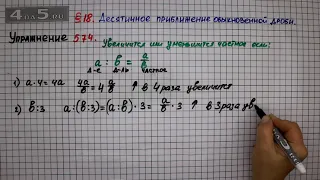 4 ПО 5.RU
§18. Десятичное приближение обыкновенной дроби.
Упражнение 574.
Увеличится или уменьшится частное если:
a : b = a/b
Д-е Д-ль частное
1) a·4=4a 4a/b = 4 a/b ↑ в 4 раза увеличится
2) b:3 a:(b:3)=(a:b)·3= a/b ·3 ↑ в 3 раза ув